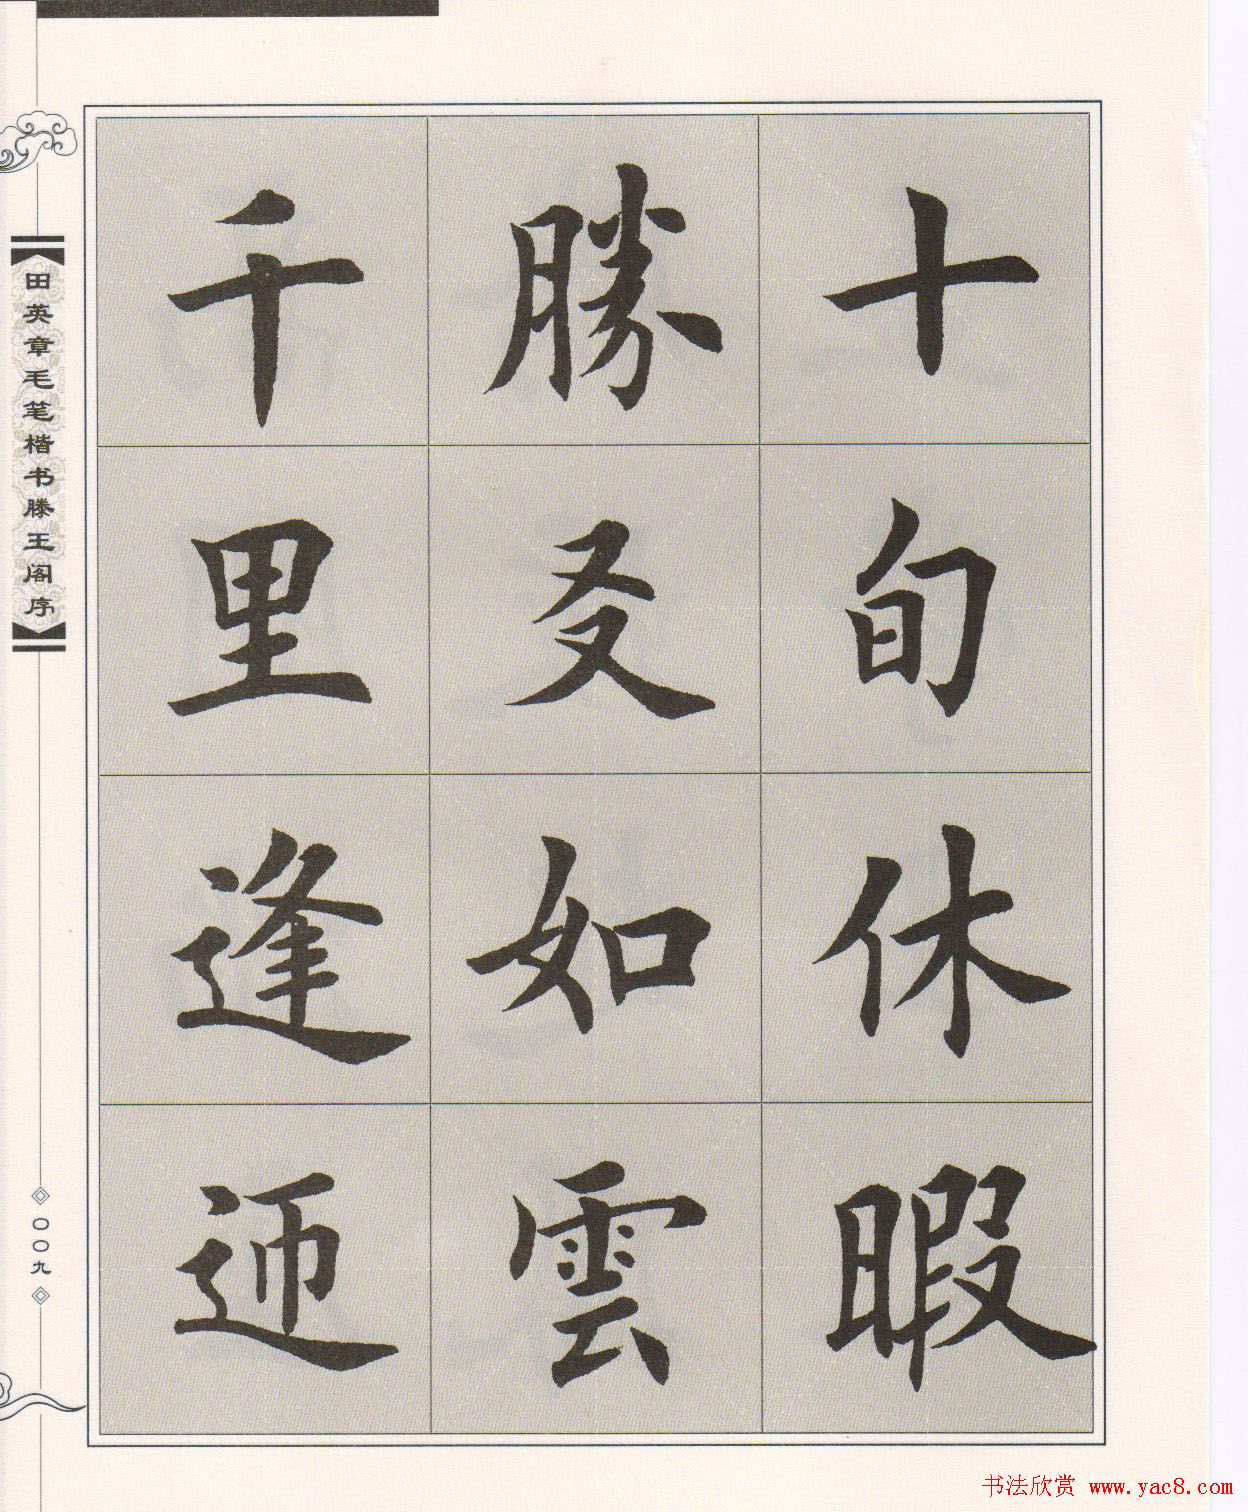 十旬休暇
勝友如雲
千里逢迎
田英章毛笔楷书滕王阁序
〇〇九
书法欣赏 www.yac8.com